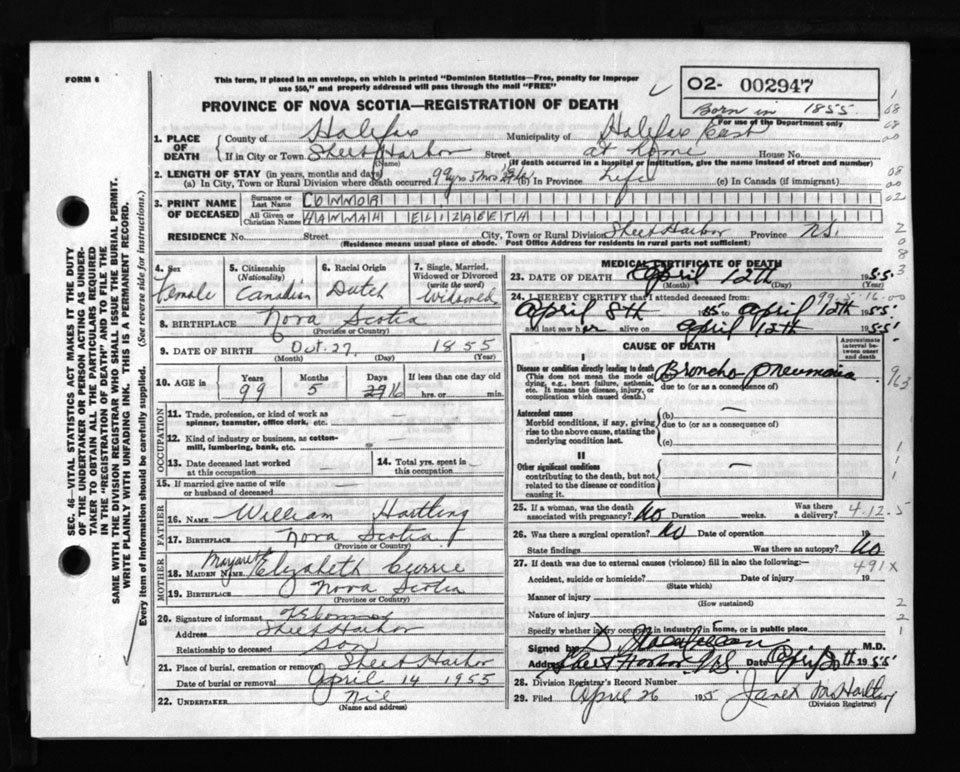 FORM 6
This form, if placed in an envelope, on which is printed "Dominion Statistics—Free, penalty for improper
use $50," and properly addressed will pass through the mail "FREE"
02- 002947
Born in 1855
For use of the Department only
PROVINCE OF NOVA SCOTIA—REGISTRATION OF DEATH
1. PLACE OF DEATH County of Halifax Municipality of Halifax East
If in City or Town Sheet Harbor Street at home House No.
(Name) (If death occurred in a hospital or institution, give the name instead of street and number)
2. LENGTH OF STAY (in years, months and days)
(a) In City, Town or Rural Division where death occurred 99 yrs 5 mos (b) In Province Life (c) In Canada (if immigrant)
3. PRINT NAME OF DECEASED Surname or Last Name CONNOR
All Given or Christian Names HANNAH ELIZABETH
RESIDENCE No. Street City, Town or Rural Division Sheet Harbor Province N.S.
(Residence means usual place of abode. Post Office Address for residents in rural parts not sufficient)
4. Sex Female
5. Citizenship (Nationality) Canadian
6. Racial Origin Dutch
7. Single, Married, Widowed or Divorced (write the word) Widowed
8. BIRTHPLACE Nova Scotia
(Province or Country)
9. DATE OF BIRTH Oct. 27 1855
(Month) (Day) (Year)
10. AGE in Years 99 Months 5 Days 27 16 If less than one day old hrs. or min.
OCCUPATION
11. Trade, profession, or kind of work as spinner, teamster, office clerk, etc.
12. Kind of industry or business, as cotton-mill, lumbering, bank, etc.
13. Date deceased last worked at this occupation
14. Total yrs. spent in this occupation
15. If married give name of wife or husband of deceased
FATHER
16. NAME William Hartling
17. BIRTHPLACE Nova Scotia
(Province or Country)
MOTHER
18. MAIDEN NAME Margaret Elizabeth Currie
19. BIRTHPLACE Nova Scotia
(Province or Country)
20. Signature of informant
Address Sheet Harbor
Relationship to deceased Son
21. Place of burial, cremation or removal Sheet Harbor
Date of burial or removal April 14 1955
22. UNDERTAKER Nil
(Name and address)
MEDICAL CERTIFICATE OF DEATH
23. DATE OF DEATH April 12th 1955
(Month) (Day) (Year)
99-5-16-00
24. I HEREBY CERTIFY that I attended deceased from:
April 8th 1955 to April 12th 1955
and last saw her alive on April 12th 1955
CAUSE OF DEATH
Approximate interval between onset and death
I
Disease or condition directly leading to death (a) Broncho-pneumonia
(This does not mean the mode of dying, e.g., heart failure, asthenia, etc. It means the disease, injury, or complication which caused death.)
due to (or as a consequence of)
Antecedent causes (b) —
Morbid conditions, if any, giving rise to the above cause, stating the underlying condition last.
due to (or as a consequence of)
(c)
II
Other significant conditions —
contributing to the death, but not related to the disease or condition causing it.
25. If a woman, was the death associated with pregnancy? No Duration weeks. Was there a delivery?
4-12-5
26. Was there a surgical operation? No Date of operation 19
State findings Was there an autopsy? No
27. If death was due to external causes (violence) fill in also the following:—
491X
Accident, suicide or homicide? Date of injury 19
(State which)
Manner of injury
(How sustained)
Nature of injury
Specify whether injury occurred in industry, in home, or in public place
Signed by M.D.
Address Sheet Harbor N.S. Date April 1955
28. Division Registrar's Record Number
29. Filed April 26 1955 Janet Hartling
(Division Registrar)
SEC. 46—VITAL STATISTICS ACT MAKES IT THE DUTY
OF THE UNDERTAKER OR PERSON ACTING AS UNDER-
TAKER TO OBTAIN ALL THE PARTICULARS REQUIRED
IN THE "REGISTRATION OF DEATH" AND TO FILE THE
SAME WITH THE DIVISION REGISTRAR WHO SHALL ISSUE THE BURIAL PERMIT.
WRITE PLAINLY WITH UNFADING INK. THIS IS A PERMANENT RECORD.
Every item of information should be carefully supplied. (See reverse side for instructions.)